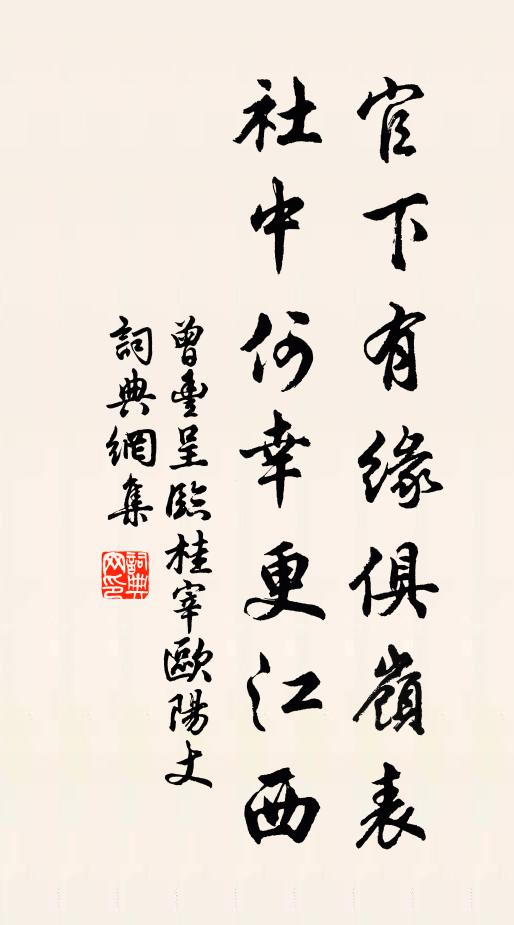 官下有緣俱嶺表
社中何幸更江西
曾豐呈臨桂宰歐陽丈
詞典網集
詞典網印